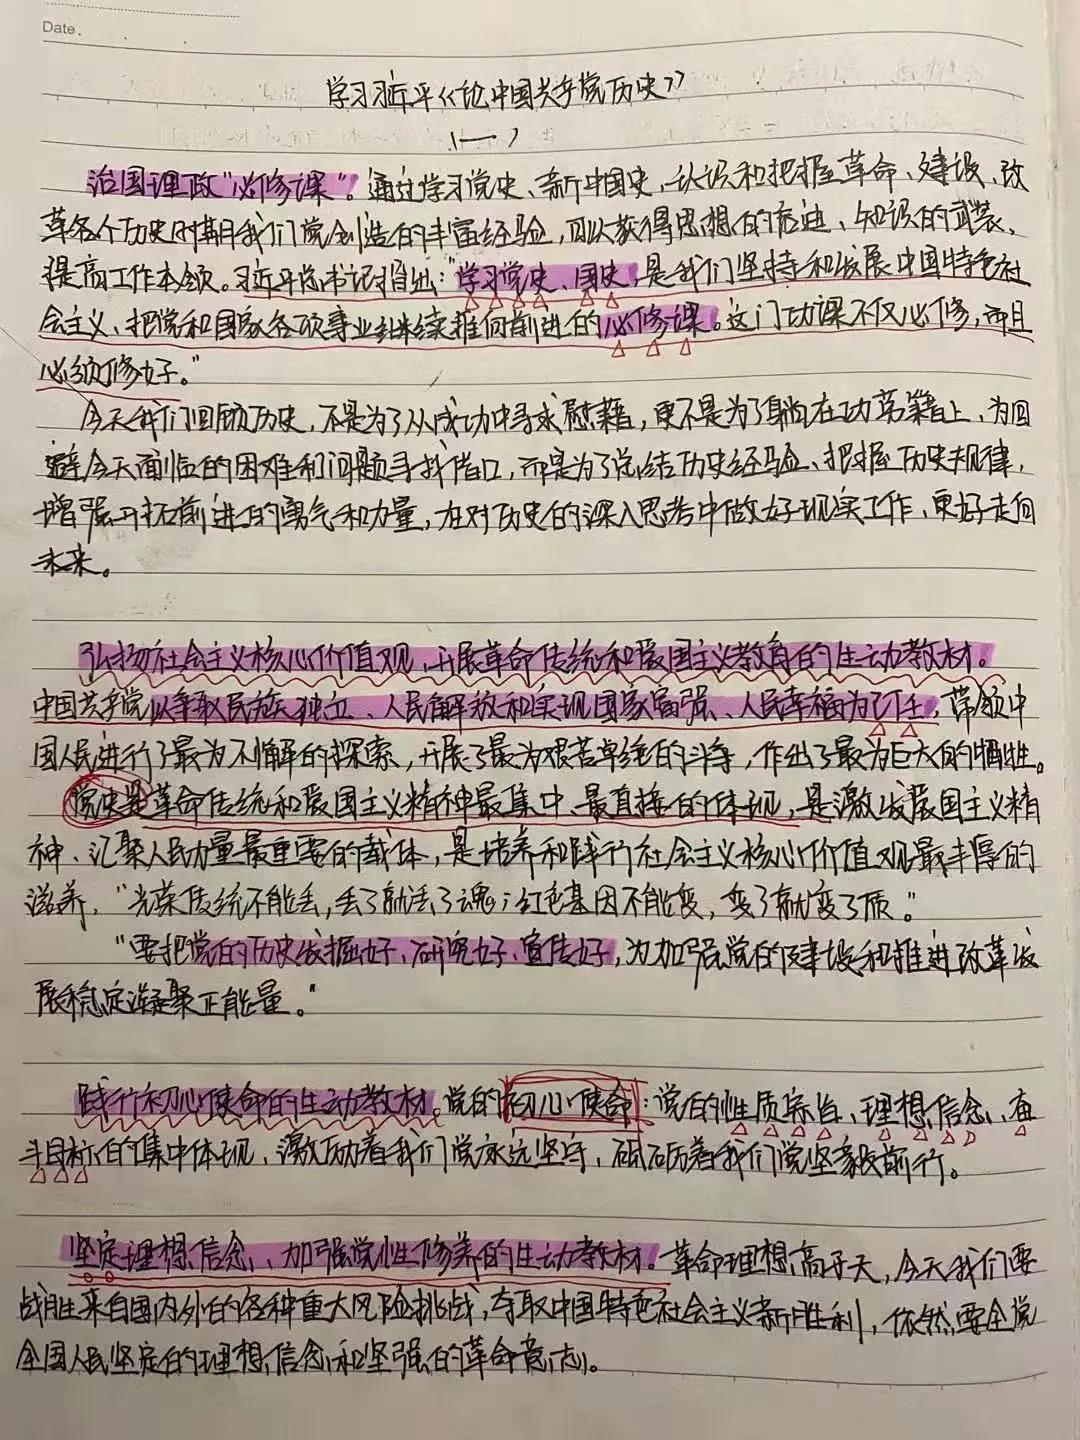 Date.
学习习近平《论中国共产党历史》
（一）
治国理政“必修课”。通过学习党史、新中国史，认识和把握革命、建设、改
革各个历史时期我们党创造的丰富经验，可以获得思想的启迪、知识的武装、
提高工作本领。习近平总书记指出：“学习党史、国史，是我们坚持和发展中国特色社
会主义、把党和国家各项事业继续推向前进的必修课。这门功课不仅必修，而且
必须修好。”
今天我们回顾历史，不是为了从成功中寻求慰藉，更不是为了躺在功劳簿上、为回
避今天面临的困难和问题寻找借口，而是为了总结历史经验、把握历史规律，
增强开拓前进的勇气和力量，在对历史的深入思考中做好现实工作、更好走向
未来。
弘扬社会主义核心价值观，开展革命传统和爱国主义教育的生动教材。
中国共产党以争取民族独立、人民解放和实现国家富强、人民幸福为己任，带领中
国人民进行了最为不懈的探索，开展了最为艰苦卓绝的斗争，作出了最为巨大的牺牲。
党史是革命传统和爱国主义精神最集中、最直接的体现，是激发爱国主义精
神、汇聚人民力量最重要的载体，是培养和践行社会主义核心价值观最丰厚的
滋养，“光荣传统不能丢，丢了就丢了魂；红色基因不能变，变了就变了质。”
“要把党的历史发掘好、研究好、宣传好，为加强党的建设和推进改革发
展稳定凝聚正能量。”
践行初心使命的生动教材。党的初心使命：党的性质宗旨、理想信念、奋
斗目标的集中体现，激励着我们党永远坚守，砥砺着我们党坚毅前行。
坚定理想信念、加强党性修养的生动教材。革命理想高于天，今天我们要
战胜来自国内外的各种重大风险挑战，夺取中国特色社会主义新胜利，依然要全党
全国人民坚定的理想信念和坚强的革命意志。